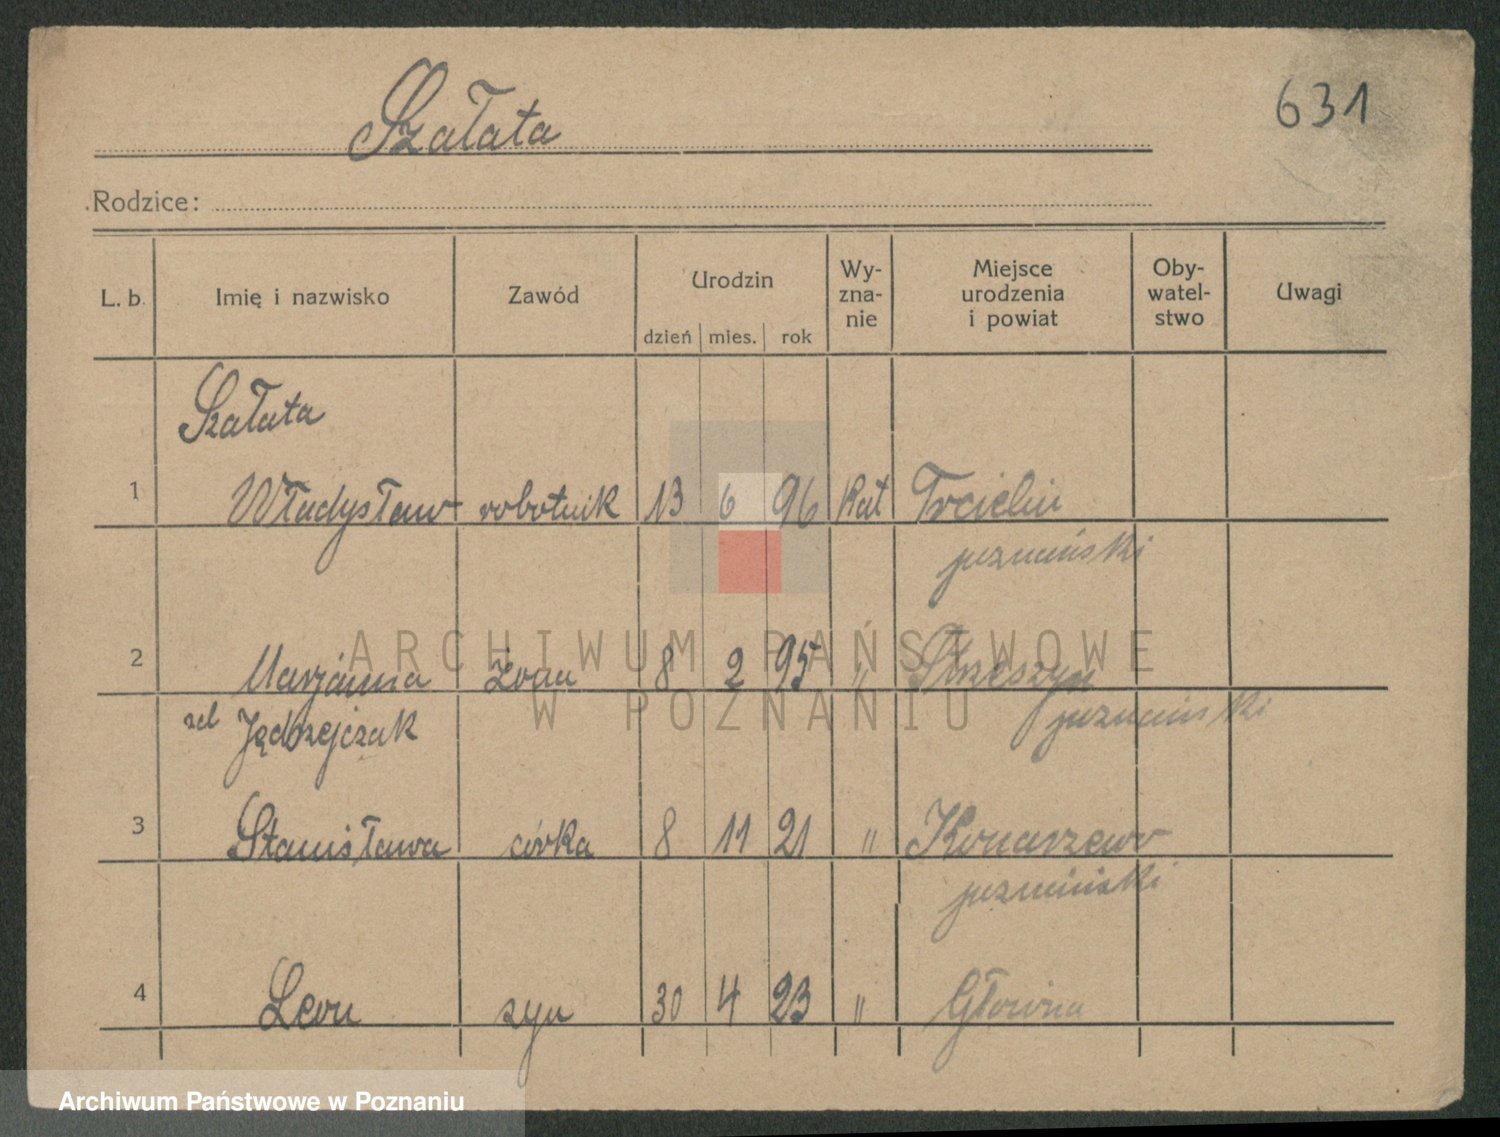 631
Szałata
Rodzice:
L. b. Imię i nazwisko Zawód Urodzin dzień mies. rok Wy-zna-nie Miejsce urodzenia i powiat Oby-watel-stwo Uwagi
Szałata
1 Władysław robotnik 13 6 96 Kat Trcielin
poznański
2 Marjanna żona 8 2 95 " Strzeszyn
zal Jędrzejczak poznański
3 Stanisława córka 8 11 21 " Konarzewo
poznański
4 Leon syn 30 4 23 " Głowna
ARCHIWUM PAŃSTWOWE
W POZNANIU
Archiwum Państwowe w Poznaniu